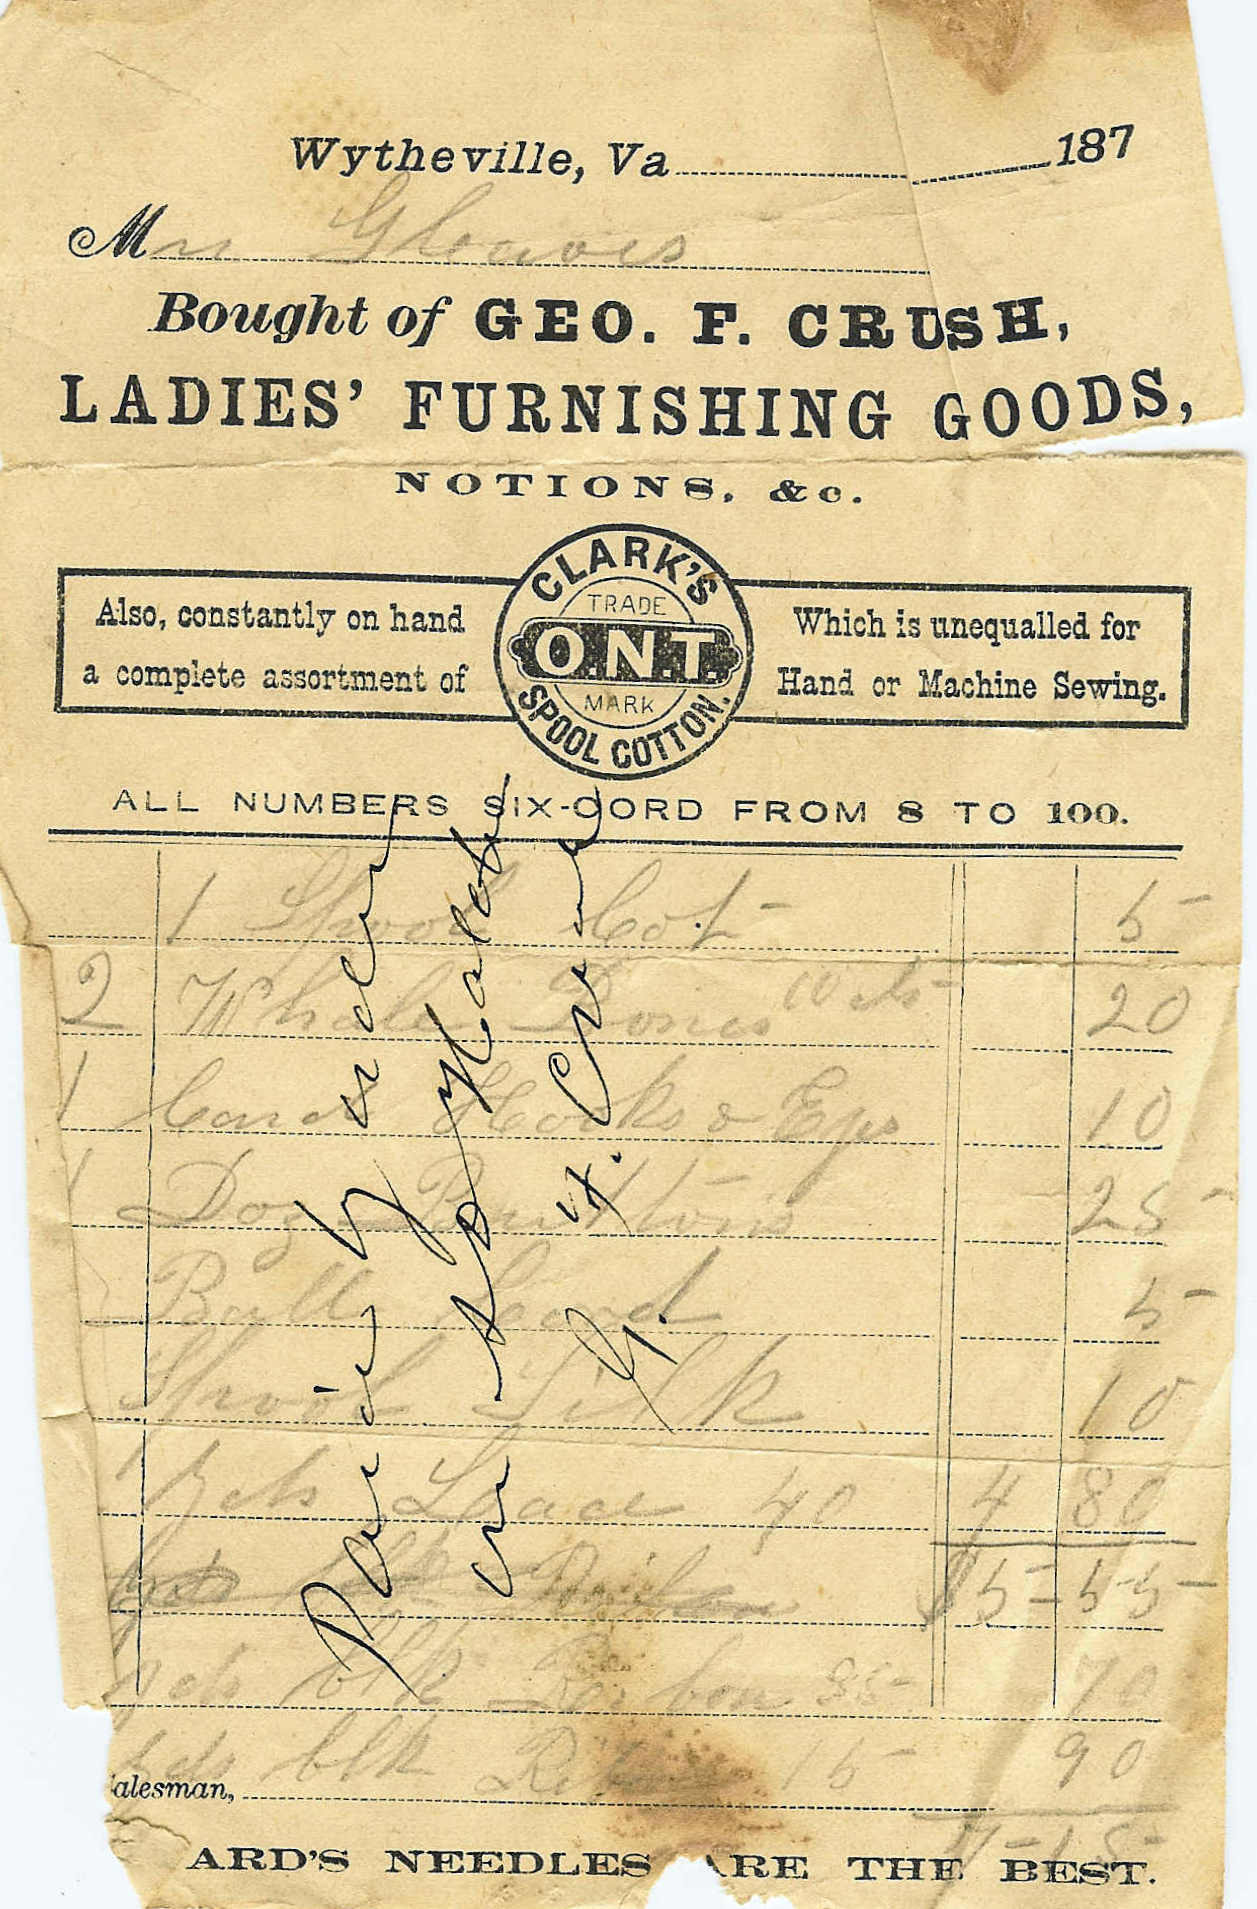 Wytheville, Va 187
Mr Gleaves
Bought of GEO. F. CRUSH,
LADIES' FURNISHING GOODS,
NOTIONS, &c.
Also, constantly on hand
a complete assortment of
CLARK'S
TRADE
O.N.T.
MARK
SPOOL COTTON.
Which is unequalled for
Hand or Machine Sewing.
ALL NUMBERS SIX-CORD FROM 8 TO 100.
1 Spool Cot 5
2 Whale Bones 10 cts 20
1 Card Hooks & Eys 10
1 Doz Buttons 25
Ball Cord 5
Spool Silk 10
yds Lace 40 4 80
$5 = 55
yds blk Ribbon 35 70
yds blk 15 90
alesman,
7 = 15
ARD'S NEEDLES ARE THE BEST.
Paid
G. F. Crush